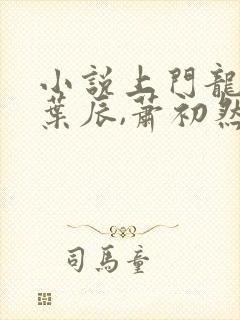 小說上門龍
葉辰,蕭初然
司馬童